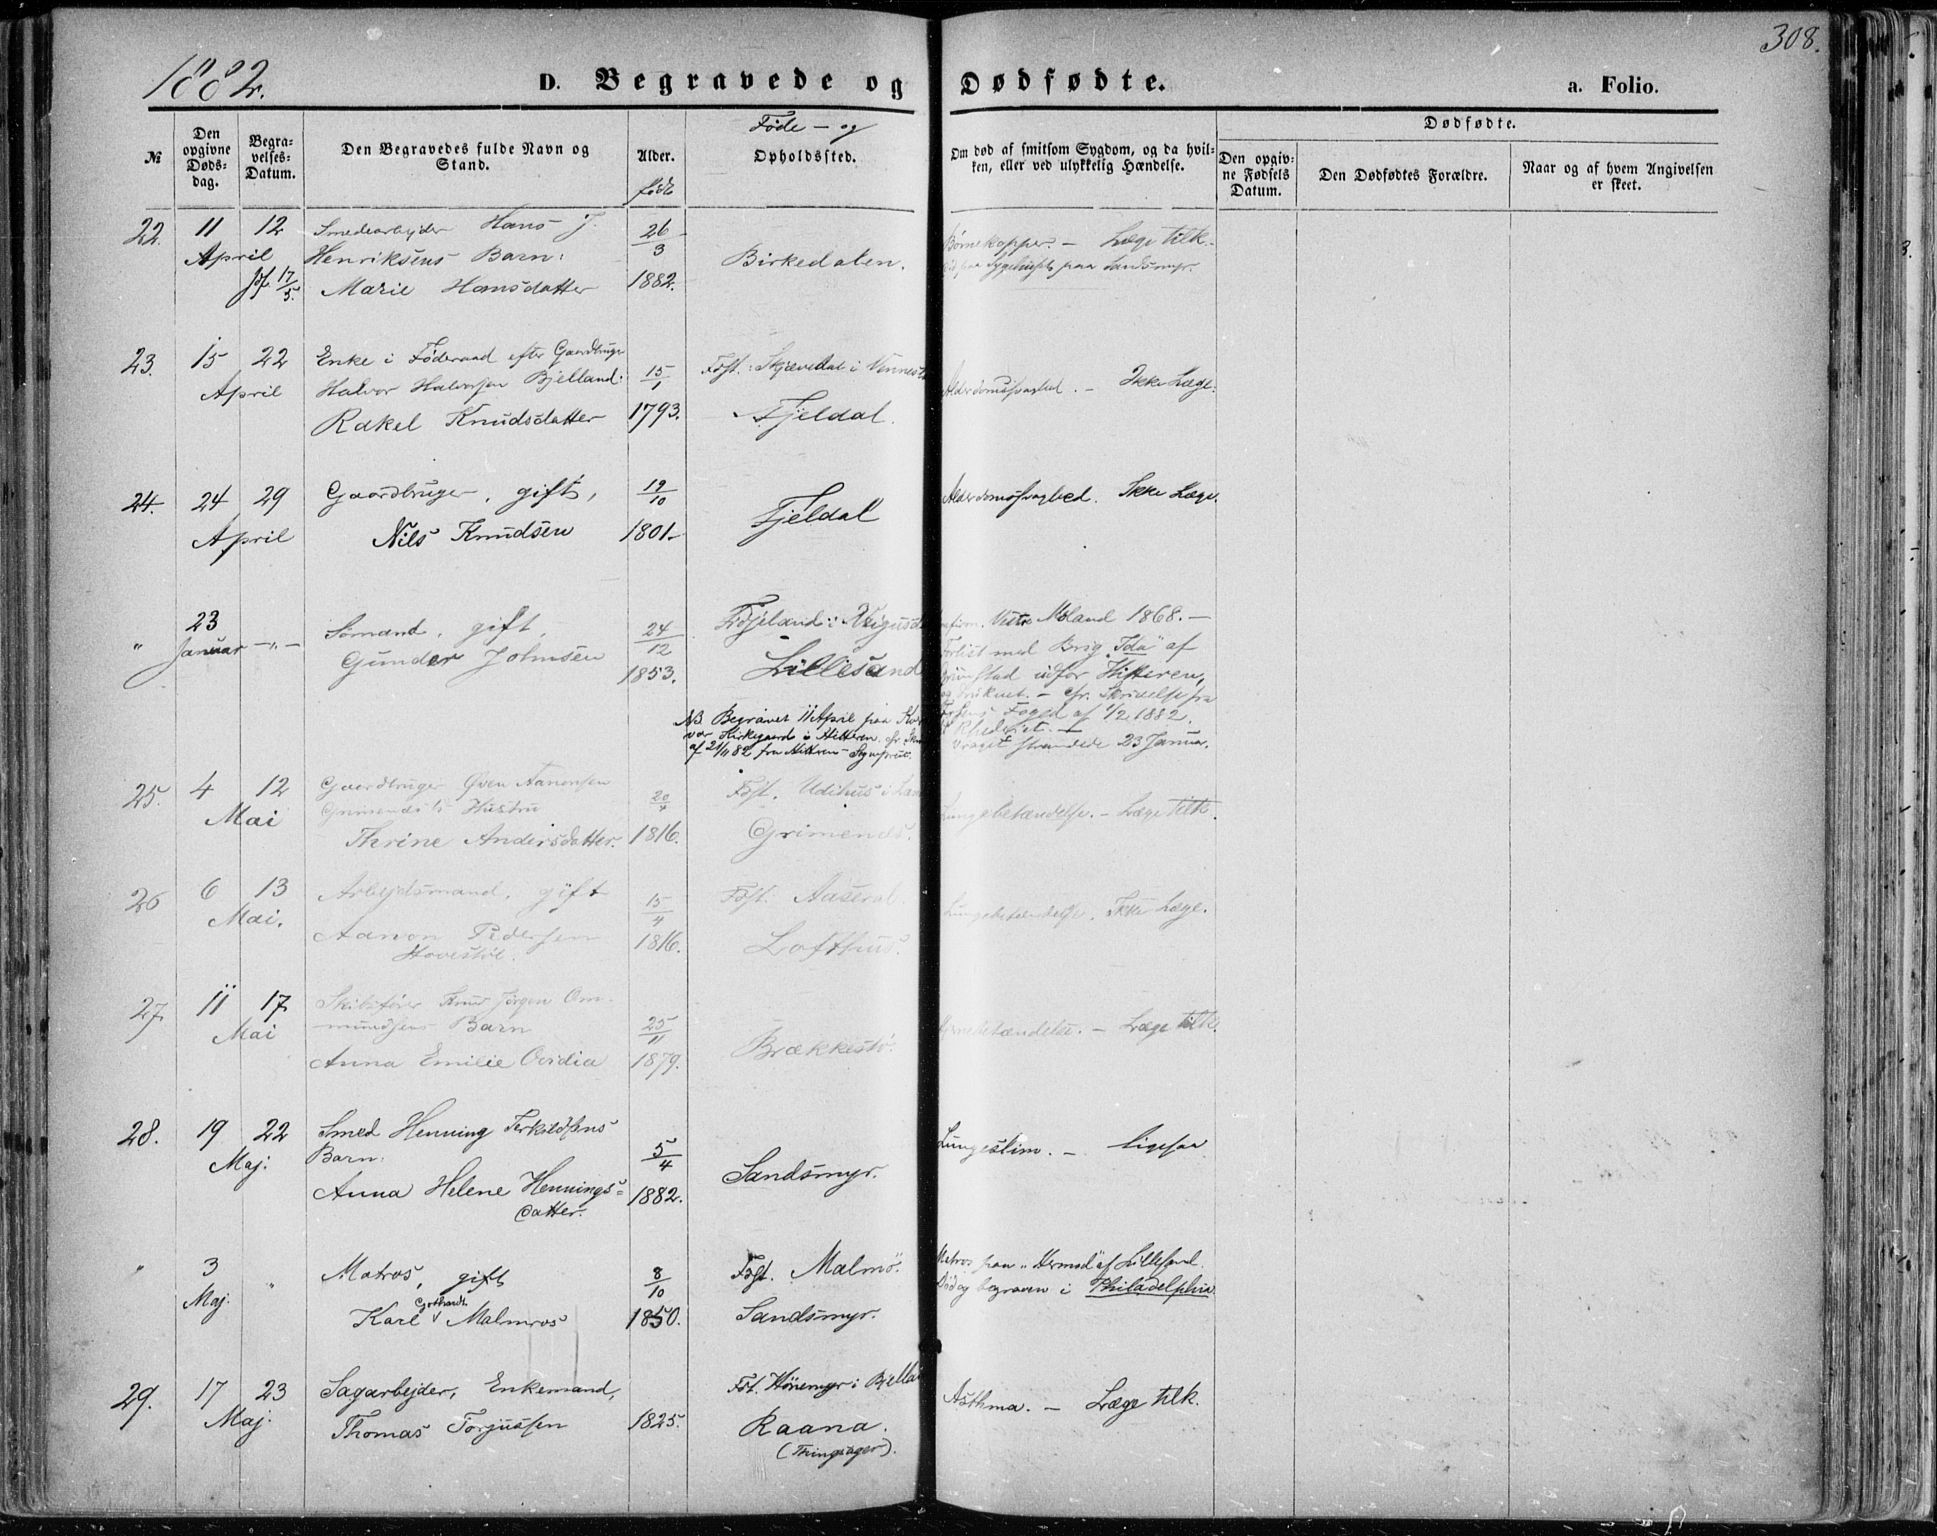 1882.
D. Begravede og Dødfødte.
a. Folio.
308.
№
Den opgivne Døds-dag.
Begra-velses-Datum.
Den Begravedes fulde Navn og Stand.
Alder.
født
Føde- og
Opholdssted.
Om død af smitsom Sygdom, og da hvil-
ken, eller ved ulykkelig Hændelse.
Dødfødte.
Den opgiv-
ne Fødsels
Datum.
Den Dødfødtes Forældre.
Naar og af hvem Angivelsen
er skeet.
22. 11 12 Smedearbejder Hans J. 26/3 Børnekopper. - Læge tilk.
April Henriksens Barn: Birkedalen. paa Sygehuset paa Sandsmyr.
Jf 17/5. Marie Hansdatter 1882.
23. 15 22 Enke i Føderaad efter Gaardbruger Føst. Skjævedal i Vennesl
April Halvor Halvorsen Bjelland: 15/1 Alderdomssvaghed. - Ikke Læge.
Rakel Knudsdatter 1793. Fjeldal.
24. 24 29 Gaardbruger, gift, 19/10 Alderdomssvaghed. Ikke Læge.
April Nils Knudsen 1801. Fjeldal
" 23 Januar -"- Sømand, gift, 24/12 Vestre Moland 1868. -
Gunder Johnsen 1853. Lillesand
Forlist med Brig "Ida" af
Grimstad udfor Hitteren,
og druknet. - cfr. Skrivelse fra
Foged af 1/2 1882.
Rhederiet. -
Vraget strandede 23 Januar.
NB Begravet 11 April paa
Kirkegaard i Hitteren. cfr
af 21/11 82 fra Hitteren Sognepræst.
25. 4 12 Gaardbruger Øven Aanonsen Føst. Udihus i
Mai Grimenæs's Hustru 20/4 Lungebetændelse. - Læge tilk.
Therine Andersdatter. 1816. Grimenæs.
26 6 13 Arbejdsmand, gift 15/4 Føst. Aaseral
Mai. Aanon Pedersen 1816. Lofthus. Lungebetændelse. Ikke Læge.
Hovestøl.
27. 11 17. Skibsfører Knud Jørgen Om-
Mai mundsens Barn 25/11 Brækkestø. Hjernebetændelse. - Læge tilk.
Anna Emilie Ovidia 1879.
28. 19 22 Smed Henning Terkildsens
Maj: Barn: 5/4 Sandsmyr. Lungeslim. - ligesaa
Anna Helene Hennings= 1882.
datter.
" 3 " Matros, gift 8/10 Føst. Malmø. Matros paa "Hermod" af Lillesand.
Maj. Død og begraven i Philadelphia.
Karl Gothardt Malmros 1850. Sandsmyr.
29. 17 23 Sagarbejder, Enkemand, Føt. Hønemyr i Bjella
Maj: Thomas Torjussen 1825. Raana. Asthma. - Læge tilk.
(Thingsager).